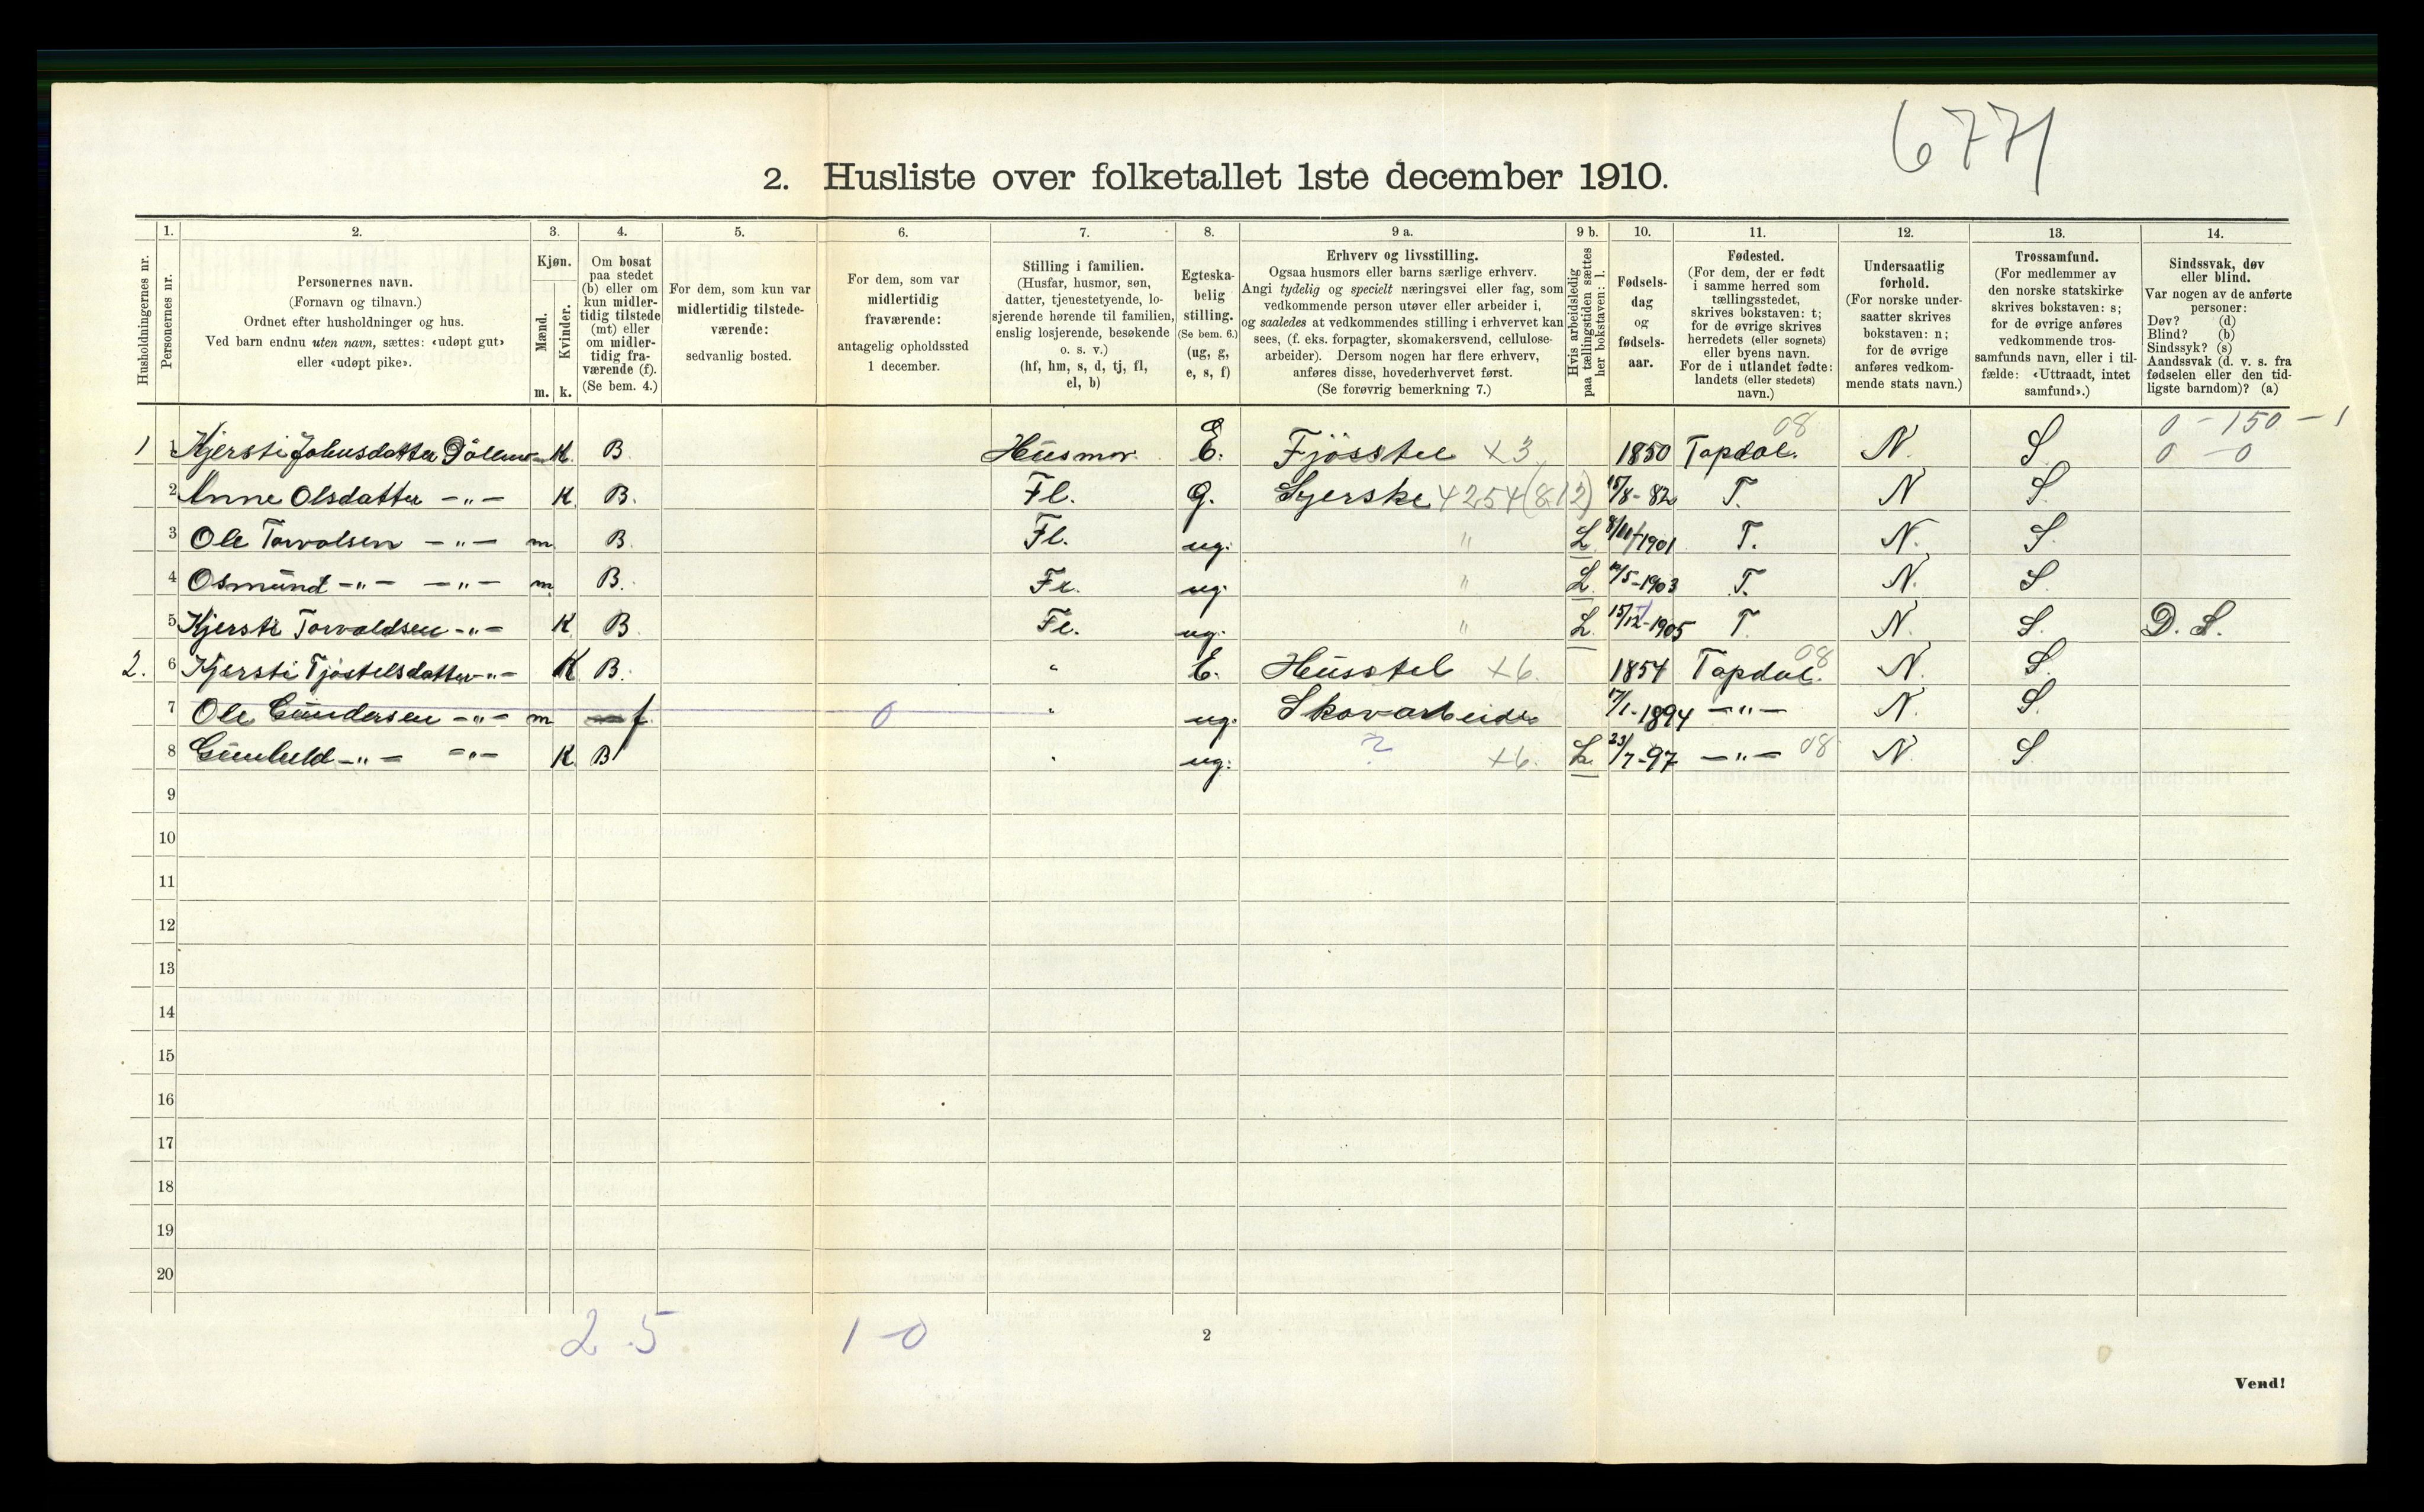 6771
2. Husliste over folketallet 1ste december 1910.
Husholdningernes nr.
1.
Personernes nr.
2.
Personernes navn.
(Fornavn og tilnavn.)
Ordnet efter husholdninger og hus.
Ved barn endnu uten navn, sættes: «udøpt gut»
eller «udøpt pike».
3.
Kjøn.
Mænd. Kvinder.
m. k.
4.
Om bosat
paa stedet
(b) eller om
kun midler-
tidig tilstede
(mt) eller
om midler-
tidig fra-
værende (f).
(Se bem. 4.)
5.
For dem, som kun var
midlertidig tilstede-
værende:
sedvanlig bosted.
6.
For dem, som var
midlertidig
fraværende:
antagelig opholdssted
1 december.
7.
Stilling i familien.
(Husfar, husmor, søn,
datter, tjenestetyende, lo-
sjerende hørende til familien,
enslig losjerende, besøkende
o. s. v.)
(hf, hm, s, d, tj, fl,
el, b)
8.
Egteska-
belig
stilling.
(Se bem. 6.)
(ug, g,
e, s, f)
9 a.
Erhverv og livsstilling.
Ogsaa husmors eller barns særlige erhverv.
Angi tydelig og specielt næringsvei eller fag, som
vedkommende person utøver eller arbeider i,
og saaledes at vedkommendes stilling i erhvervet kan
sees, (f. eks. forpagter, skomakersvend, cellulose-
arbeider). Dersom nogen har flere erhverv,
anføres disse, hovederhvervet først.
(Se forøvrig bemerkning 7.)
9 b.
Hvis arbeidsledig
paa tællingstiden sættes
her bokstaven: l.
10.
Fødsels-
dag
og
fødsels-
aar.
11.
Fødested.
(For dem, der er født
i samme herred som
tællingsstedet,
skrives bokstaven: t;
for de øvrige skrives
herredets (eller sognets)
eller byens navn.
For de i utlandet fødte:
landets (eller stedets)
navn.)
12.
Undersaatlig
forhold.
(For norske under-
saatter skrives
bokstaven: n;
for de øvrige
anføres vedkom-
mende stats navn.)
13.
Trossamfund.
(For medlemmer av
den norske statskirke
skrives bokstaven: s;
for de øvrige anføres
vedkommende tros-
samfunds navn, eller i til-
fælde: «Uttraadt, intet
samfund».)
14.
Sindssvak, døv
eller blind.
Var nogen av de anførte
personer:
Døv? (d)
Blind? (b)
Sindssyk? (s)
Aandssvak (d. v. s. fra
fødselen eller den tid-
ligste barndom)? (a)
08 0 - 150 - 1
1 1 Kjersti Johnsdatter K B. Husmor. E. Fjösstel x3 1850 Topdal. N. S. 0 0
2 Anne Olsdatter -"- K B. Fl. G. Syerske 4254 (812) 15/8-82 T. N S.
3 Ole Torvolsen -"- m. B. Fl. ug. " L. 1901 T. N. S.
4 Osmund -"- -"- m. B. Fl. ug. " L. 1903 T. N. S.
5 Kjersti Torvoldsen -"- K. B. Fl. ug. " L. 15/12-1905 T. N. S. D. S.
2. 6 Kjersti Tjöstelsdatter -"- K B. " E. Husstel x6. 1854 Topdal. 08 N. S.
7 Ole Gundersen -"- m f. 0 " ug. Skovarbeider 17/1-1894 -"- N. S.
8 Gunhuld -"- -"- K B " ug. ? x6. L. 23/7-97 -"- 08 N S.
9
10
11
12
13
14
15
16
17
18
19
20
2 5 1 0
2
Vend!